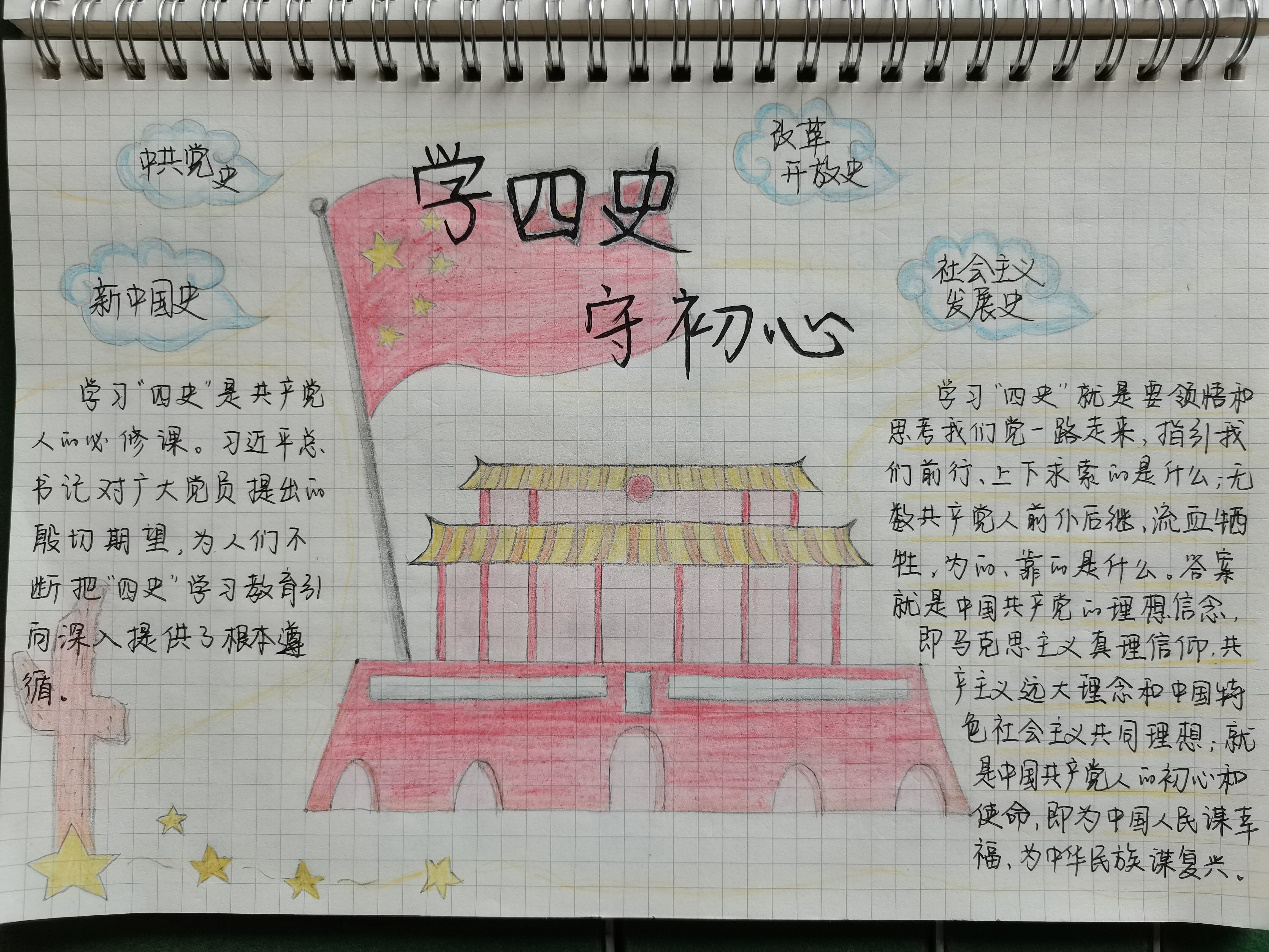 学四史
守初心
中共党史
新中国史
改革
开放史
社会主义
发展史
学习“四史”是共产党
人的必修课。习近平总
书记对广大党员提出的
殷切期望,为人们不
断把“四史”学习教育引
向深入提供了根本遵
循。
学习“四史”就是要领悟和
思考我们党一路走来,指引我
们前行、上下求索的是什么;无
数共产党人前仆后继,流血牺
牲,为的、靠的是什么。答案
就是中国共产党的理想信念,
即马克思主义真理信仰,共
产主义远大理念和中国特
色社会主义共同理想;就
是中国共产党人的初心和
使命,即为中国人民谋幸
福,为中华民族谋复兴。